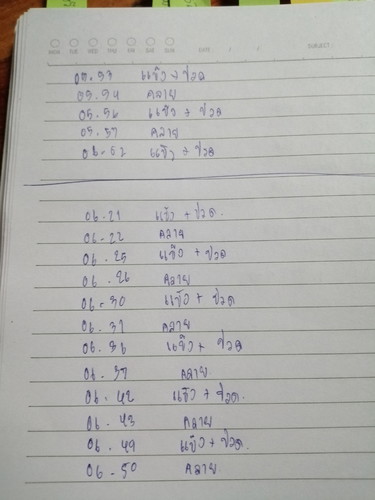 MON TUE WED THU FRI SAT SUN DATE / / SUBJECT:
05.53 แข็ง + ปวด
05.54 คลาย
05.56 แข็ง + ปวด
05.57 คลาย
06.02 แข็ง + ปวด
06.21 แข็ง + ปวด.
06.22 คลาย
06.25 แข็ง + ปวด
06.26 คลาย
06.30 แข็ง + ปวด
06.31 คลาย
06.36 แข็ง + ปวด
06.37 คลาย.
06.42 แข็ง + ปวด.
06.43 คลาย
06.49 แข็ง + ปวด.
06.50 คลาย